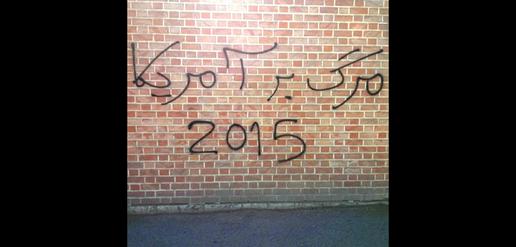 مرگ بر آمریکا
2015